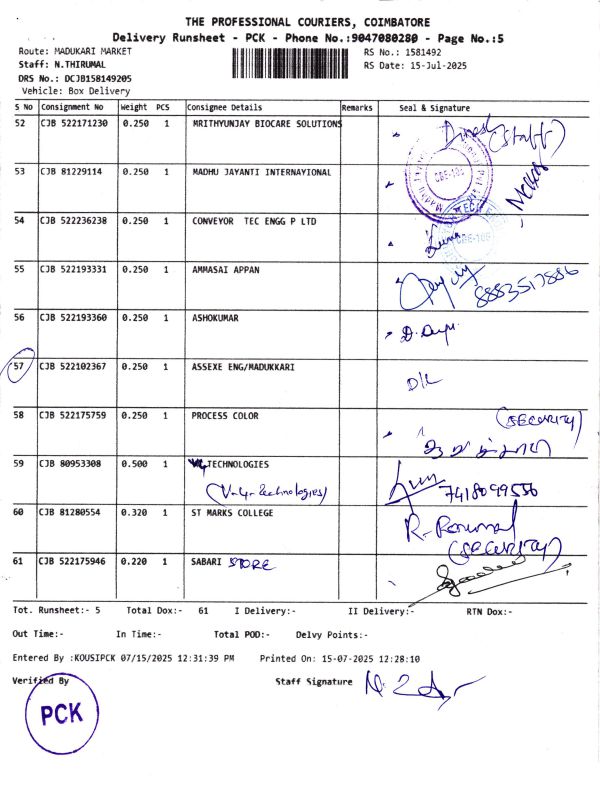 THE PROFESSIONAL COURIERS, COIMBATORE
Delivery Runsheet - PCK - Phone No.:9047080280 - Page No.:5
Route: MADUKARI MARKET RS No.: 1581492
Staff: N.THIRUMAL RS Date: 15-Jul-2025
DRS No.: DCJB158149205
Vehicle: Box Delivery
S No Consignment No Weight PCS Consignee Details Remarks Seal & Signature
52 CJB 522171230 0.250 1 MRITHYUNJAY BIOCARE SOLUTIONS Dinesh (Staff)
53 CJB 81229114 0.250 1 MADHU JAYANTI INTERNAYIONAL
54 CJB 522236238 0.250 1 CONVEYOR TEC ENGG P LTD
55 CJB 522193331 0.250 1 AMMASAI APPAN 8883517886
56 CJB 522193360 0.250 1 ASHOKUMAR
57 CJB 522102367 0.250 1 ASSEXE ENG/MADUKKARI D/L
58 CJB 522175759 0.250 1 PROCESS COLOR (SECURITY)
59 CJB 80953308 0.500 1 V4 TECHNOLOGIES
(V-4-Technologies) 7418099550
60 CJB 81280554 0.320 1 ST MARKS COLLEGE R. Perumal
(SECURITY)
61 CJB 522175946 0.220 1 SABARI STORE
Tot. Runsheet:- 5 Total Dox:- 61 I Delivery:- II Delivery:- RTN Dox:-
Out Time:- In Time:- Total POD:- Delvy Points:-
Entered By :KOUSIPCK 07/15/2025 12:31:39 PM Printed On: 15-07-2025 12:28:10
Verified By Staff Signature
PCK